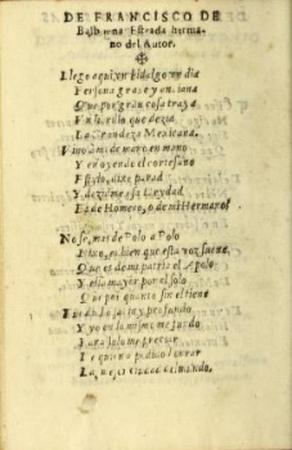 DE FRANCISCO DE
Balbuena Estrada herma-
no del Autor.
Llego aqui un hidalgo un dia
Persona grave y anciana
Que por gran cosa traya
Un librillo que dezia
La Grandeza Mexicana.
Vino a mi de mano en mano
Y en oyendo el cortesano
Estylo, dixe parad
Y dezidme essa Deydad
Es de Homero, o de mi Hermano?
No se, mas de Polo a Polo
Dixo, es bien que esta voz suene,
Que es de mi patria el Apolo
Y el la mayor por el solo
Que por quanto sin el tiene
y profundo
Y yo en lo mismo me fundo
Para solo me preciar
De quien a podido honrar
La mejor ciudad del mundo.